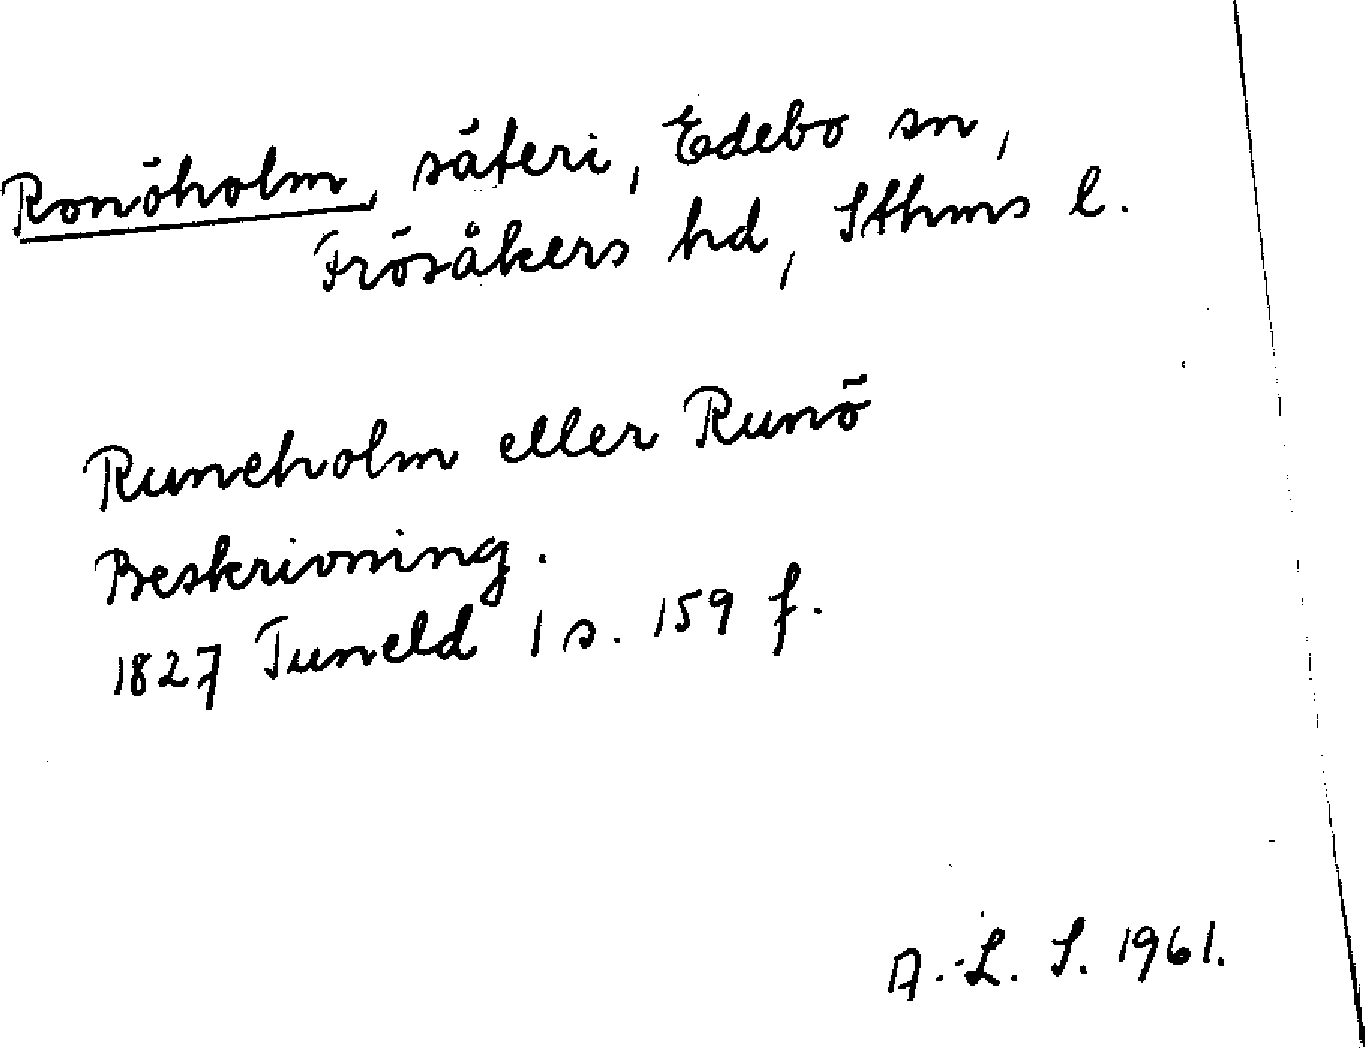 Ronöholm, säteri, Edebo sn,
Frösåkers hd, Sthms l.
Runeholm eller Runö
Beskrivning.
1827 Tuneld 1 s. 159 f.
A.-L. S. 1961.